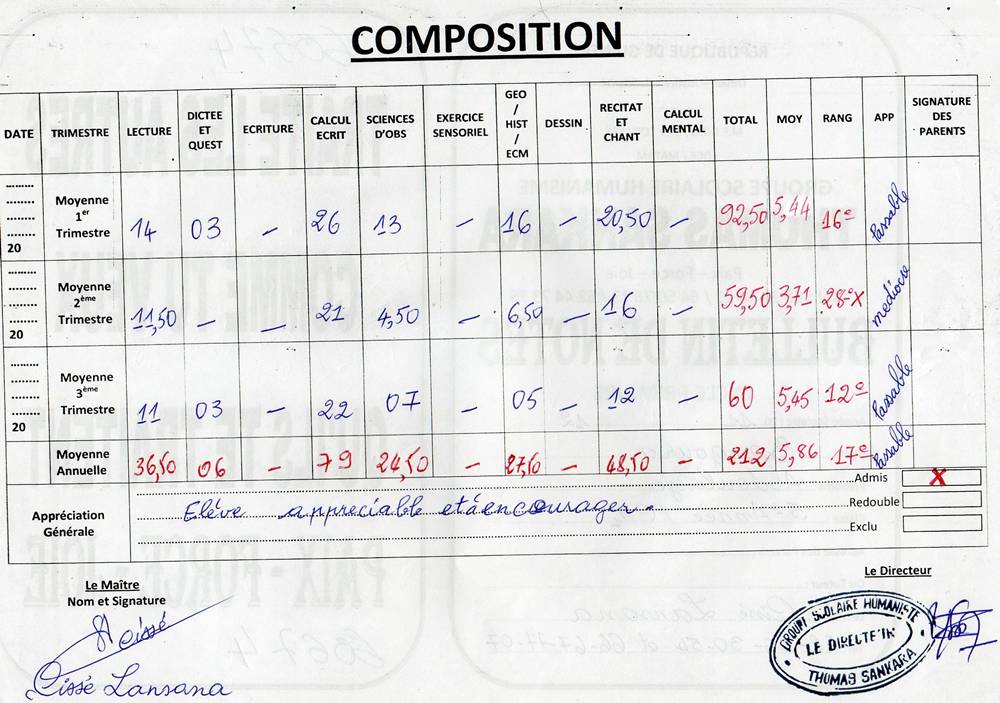 COMPOSITION
DATE TRIMESTRE LECTURE DICTEE ET QUEST ECRITURE CALCUL ECRIT SCIENCES D'OBS EXERCICE SENSORIEL GEO / HIST / ECM DESSIN RECITAT ET CHANT CALCUL MENTAL TOTAL MOY RANG APP SIGNATURE DES PARENTS
20 Moyenne 1er Trimestre 14 03 – 26 13 – 16 – 20,50 – 92,50 5,44 16e Passable
20 Moyenne 2ème Trimestre 11,50 – – 21 4,50 – 6,50 – 16 – 59,50 3,71 28ex mediocre
20 Moyenne 3ème Trimestre 11 03 – 22 07 – 05 – 12 – 60 5,45 12e Passable
Moyenne Annuelle 36,50 06 – 79 24,50 – 27,50 – 48,50 – 212 5,86 17e Passable
Admis X
Appréciation Générale Elève appreciable et à encourager.
Redouble
Exclu
Le Maître
Nom et Signature
Cissé Lansana
Le Directeur
GROUPE SCOLAIRE HUMANISTE
LE DIRECTEUR
THOMAS SANKARA